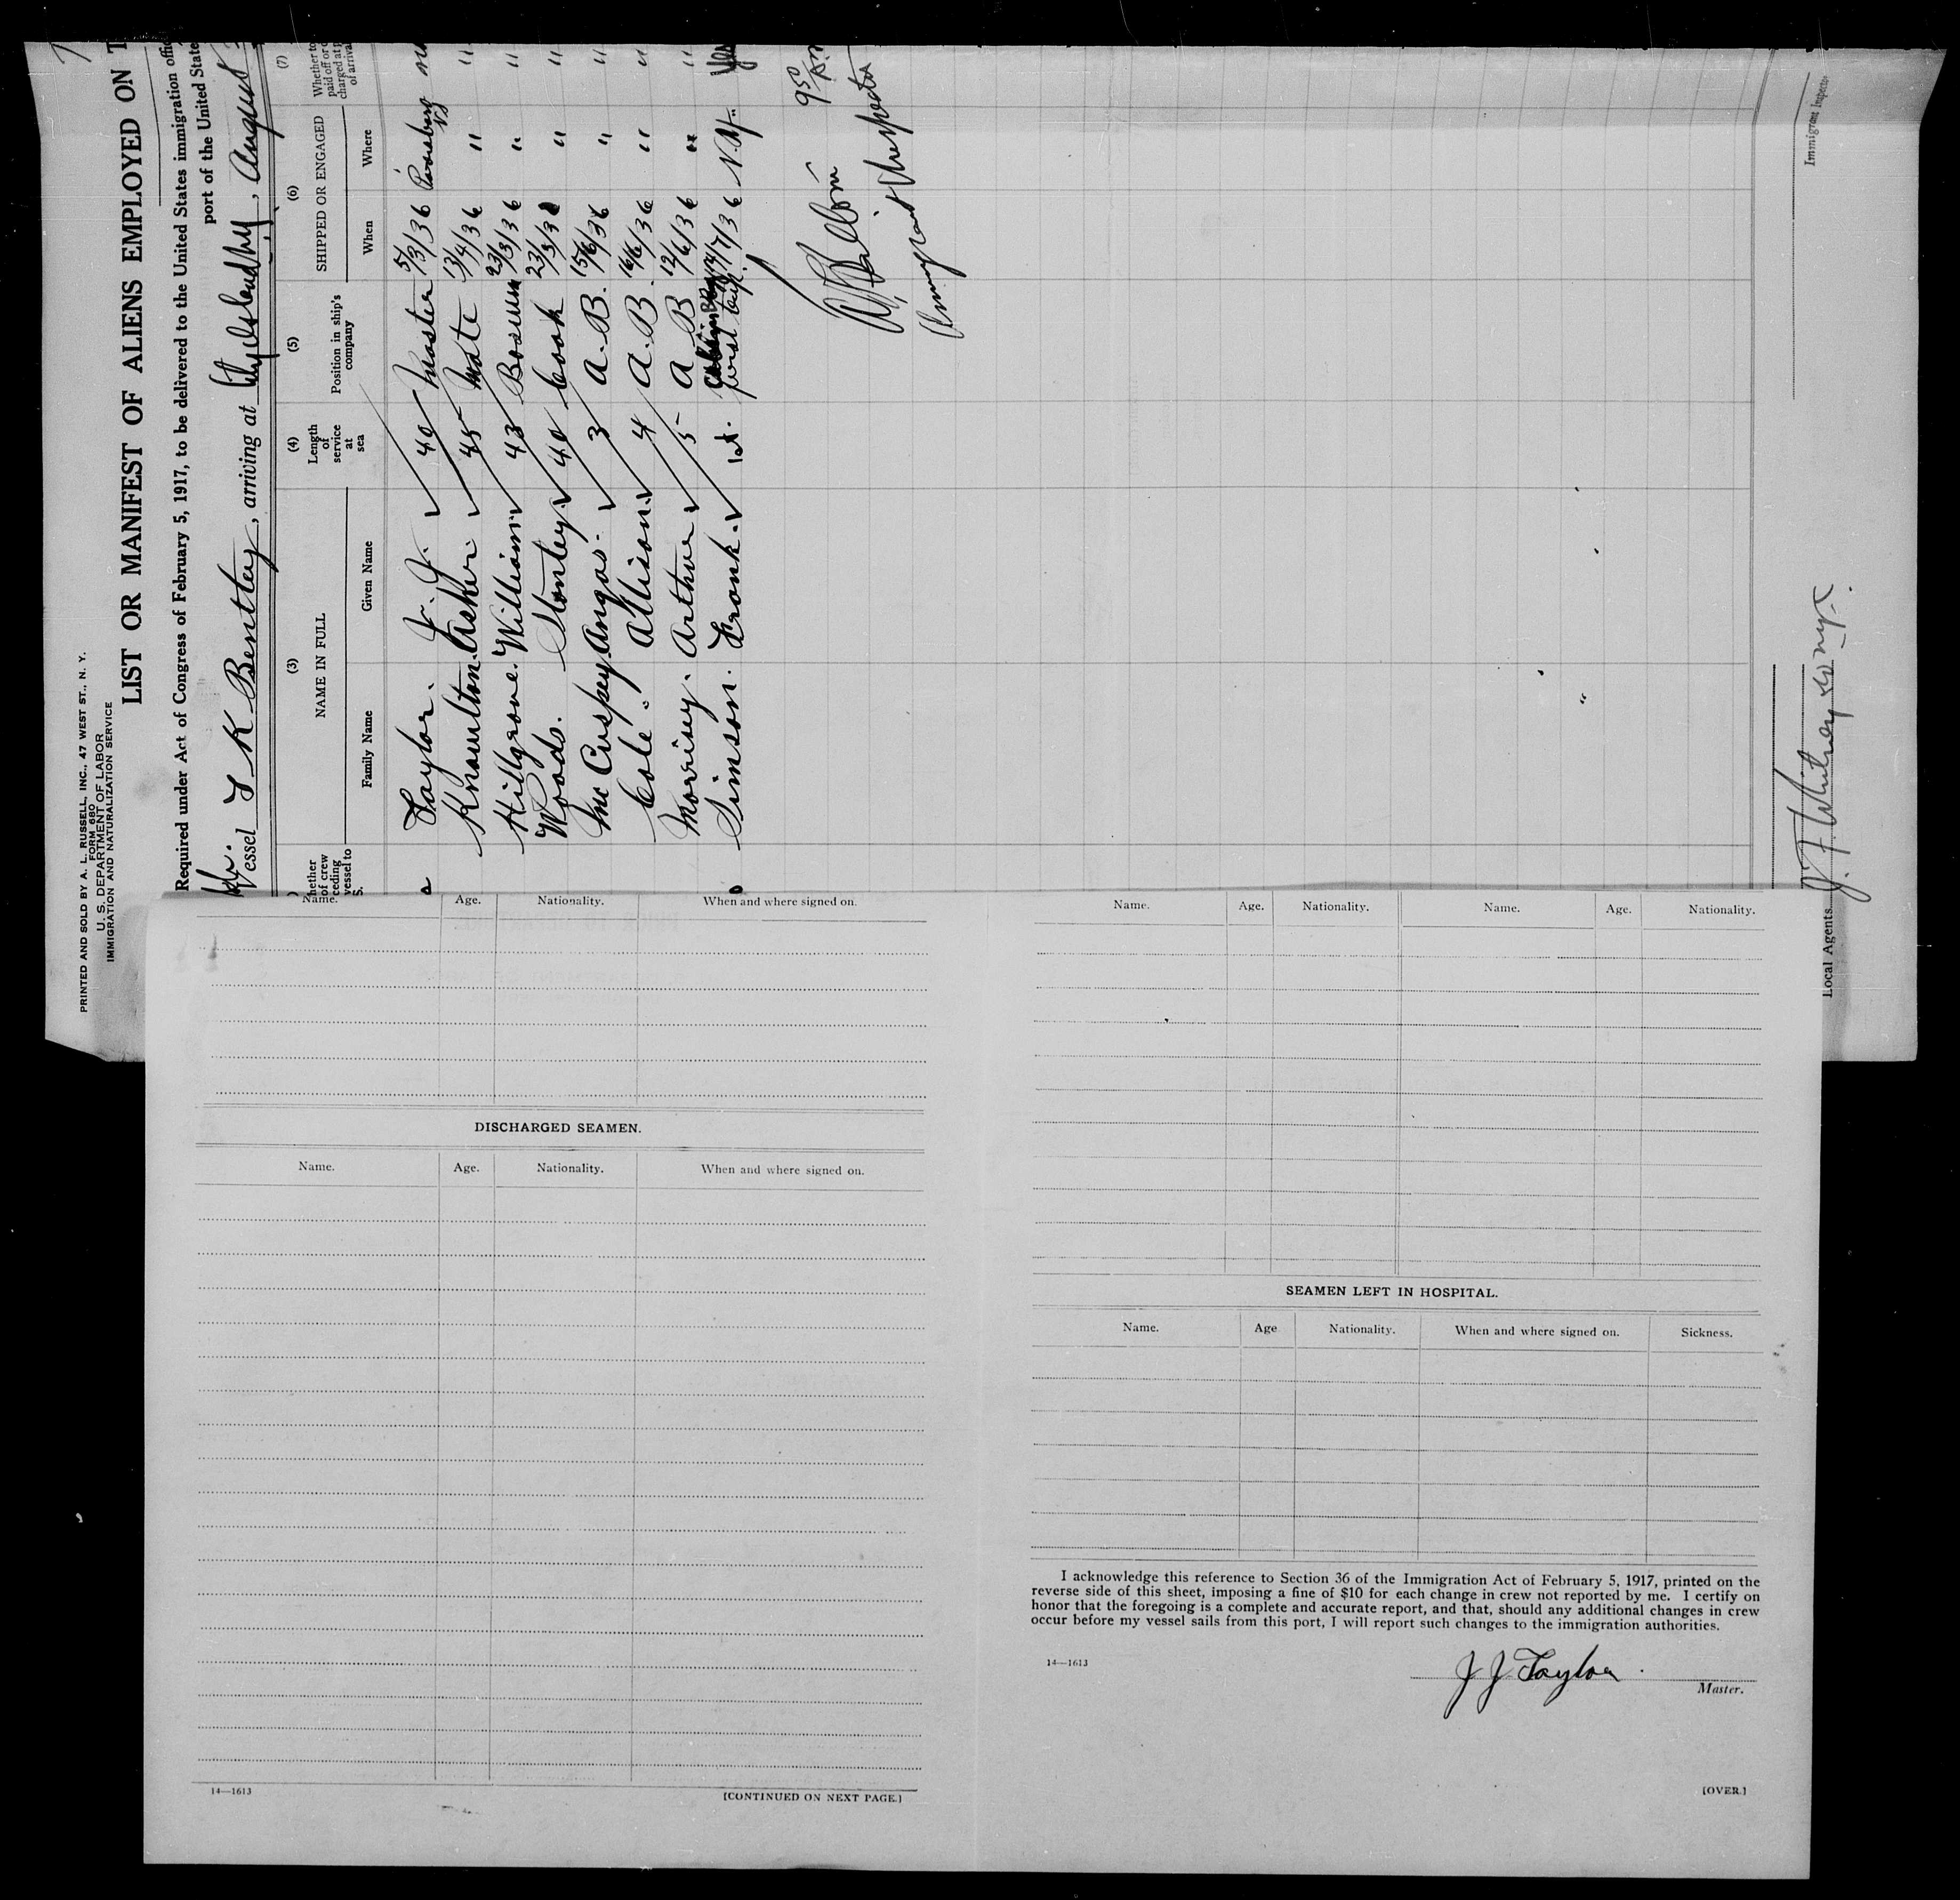 PRINTED AND SOLD BY A. L. RUSSELL, INC., 47 WEST ST., N. Y.
FORM 680
U. S. DEPARTMENT OF LABOR
IMMIGRATION AND NATURALIZATION SERVICE
LIST OR MANIFEST OF ALIENS EMPLOYED ON T
Required under Act of Congress of February 5, 1917, to be delivered to the United States immigration offic
port of the United State
Vessel T K Bentley, arriving at, August
(3) (4) (5) (6) (7)
NAME IN FULL
Family Name Given Name
Length of service at sea
Position in ship's company
SHIPPED OR ENGAGED
When Where
Whether to
paid off or d
charged at p
of arrival
hether
of crew
ceding
vessel to
S.
Taylor. J. J. 40 Master 5/3/36 Parrsboro NS
Knowlton Asher 45 Mate 13/4/36 " "
Hillgrove. William 43 Bosum 23/3/36 " "
Woods. Stanley. 40 Cook 23/3/36 " "
Mc Cuspey Angas. 3 A. B. 15/6/36 " "
Cole. Allison. 4 A. B. 16/6/36 " "
Morrisey. Arthur 5 A B 12/6/36 " "
Simson. Frank. 1st. first trip. 14/7/36 N.Y. Yes
9 50
Immigrant Inspector
Immigrant Inspector
Local Agents J. F. Whitney Co NY.
Name. Age. Nationality. When and where signed on.
DISCHARGED SEAMEN.
Name. Age. Nationality. When and where signed on.
14—1613
[CONTINUED ON NEXT PAGE.]
Name. Age. Nationality. Name. Age. Nationality.
SEAMEN LEFT IN HOSPITAL.
Name. Age Nationality. When and where signed on. Sickness.
I acknowledge this reference to Section 36 of the Immigration Act of February 5, 1917, printed on the
reverse side of this sheet, imposing a fine of $10 for each change in crew not reported by me. I certify on
honor that the foregoing is a complete and accurate report, and that, should any additional changes in crew
occur before my vessel sails from this port, I will report such changes to the immigration authorities.
14—1613
J J Taylor
Master.
[OVER.]